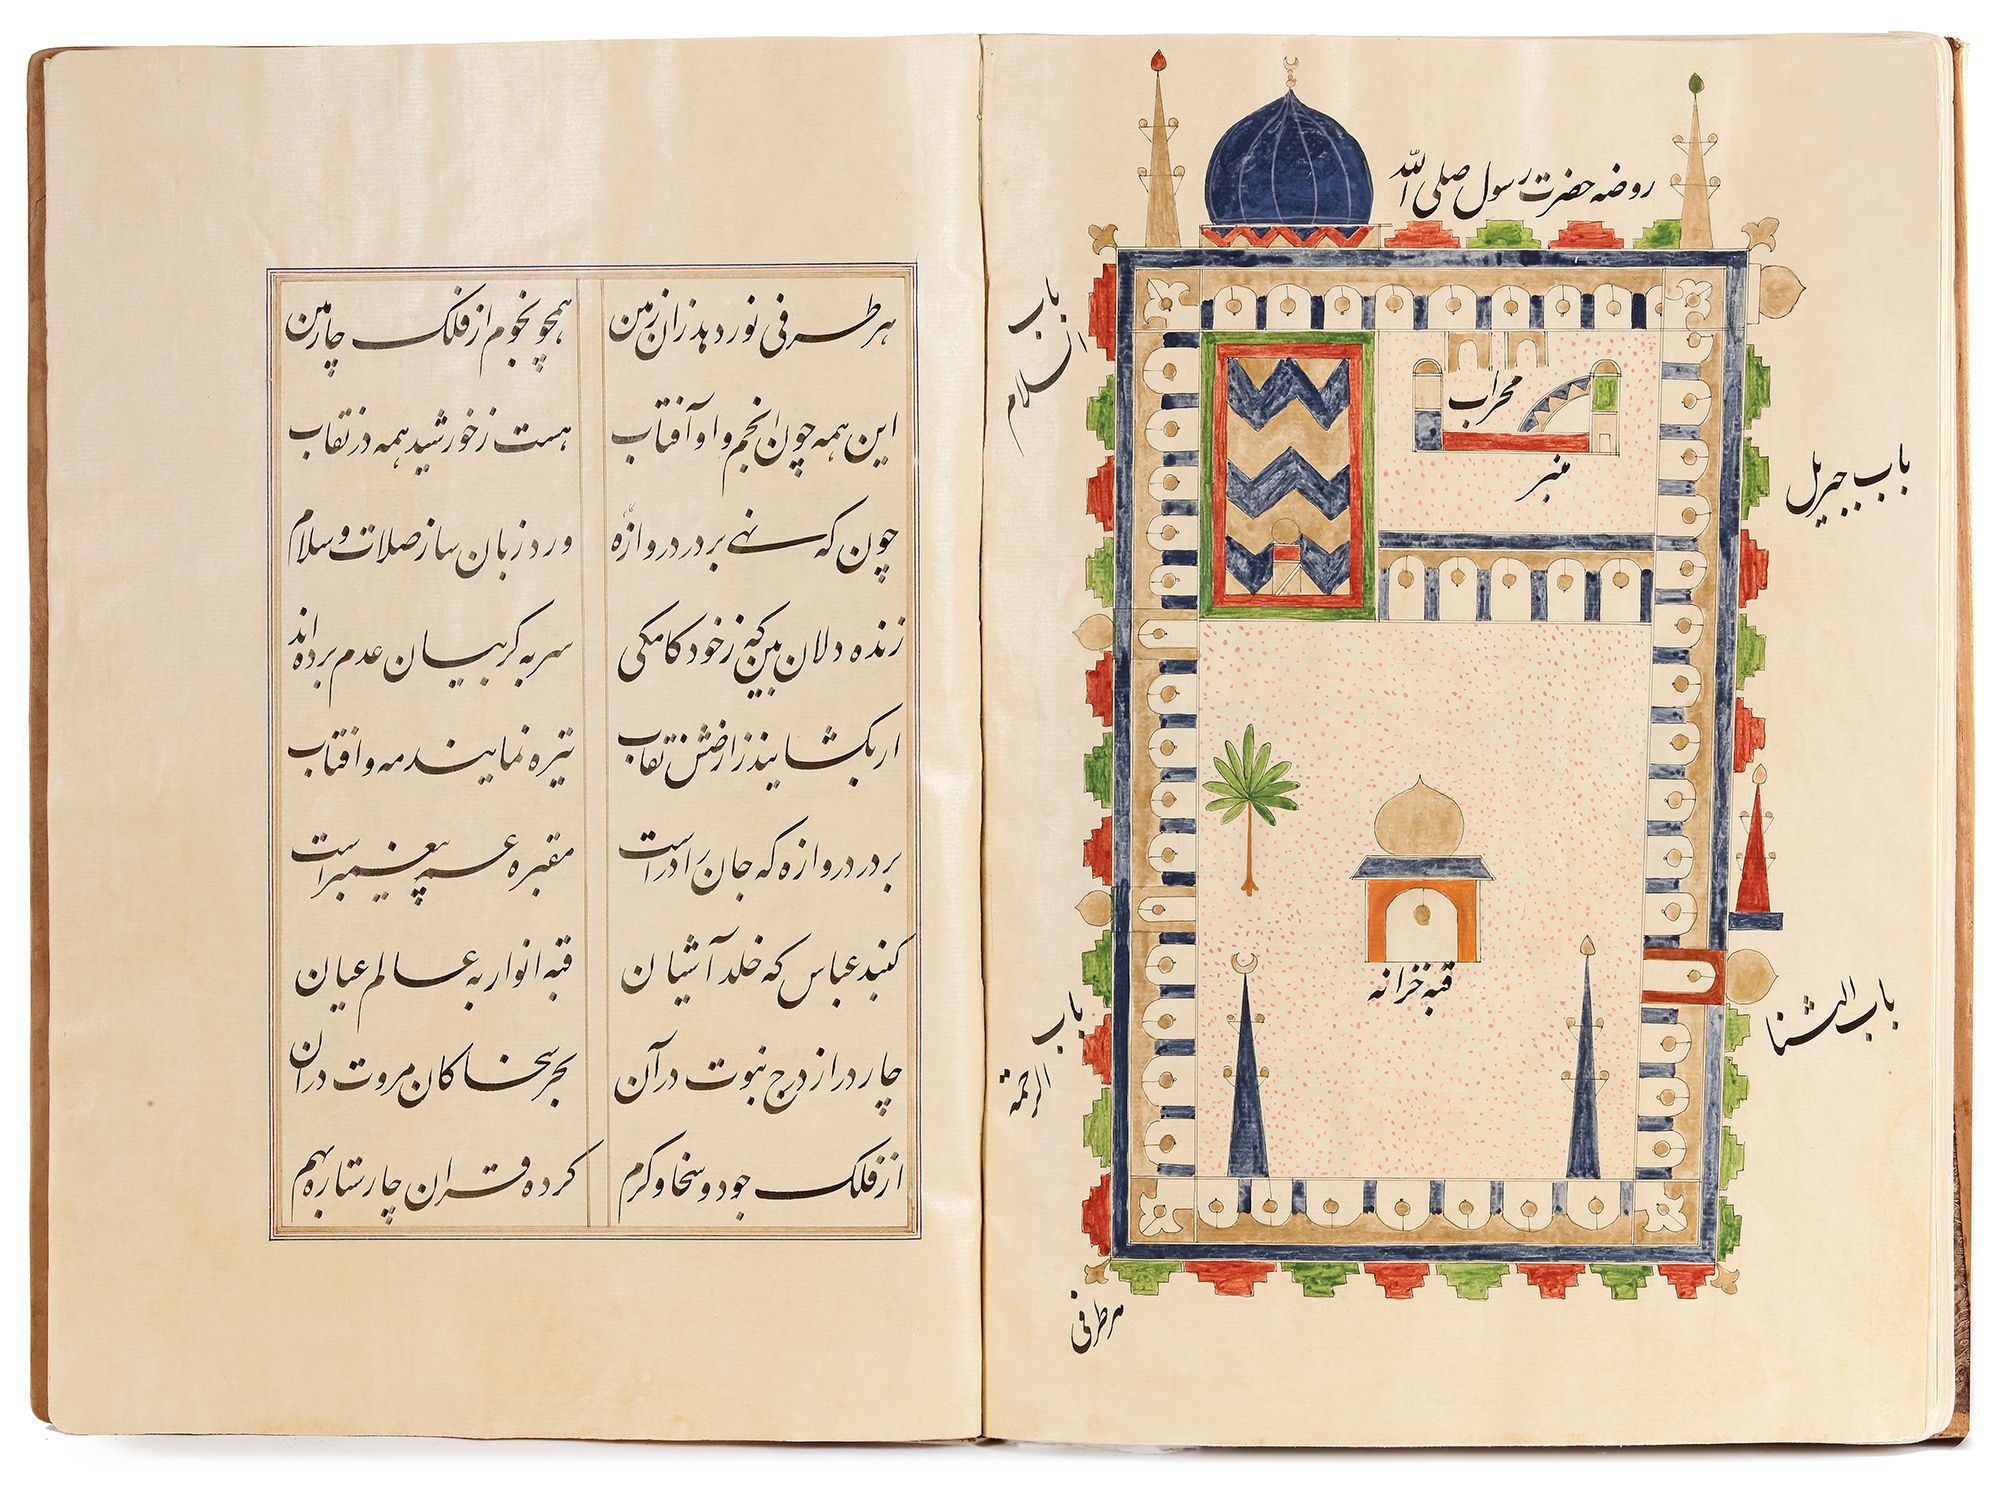 روضه حضرت رسول صلی الله
باب السلام
محراب
منبر
باب جبریل
قبه خزانه
باب النسا
باب الرحمة
هر طرفی
هر طرفی نور دهد زان زمین
همچو نجوم از فلک چارمین
این همه چون انجم و او آفتاب
هست ز خورشید همه در نقاب
چون که نهی بر در دروازه
ورد زبان ساز صلات و سلام
زنده دلان بین که ز خود کامکی
سر به گریبان عدم برده اند
ار بکشایند ز ارضش نقاب
تیره نمایند مه و افتاب
بر در دروازه که جان را دراست
مقبره عم پیغمبر است
کنبد عباس که خلد آشیان
قبه انوار به عالم عیان
چار در از درج نبوت در آن
بحر سخا کان مروت در آن
از فلک جود و سخا و کرم
کرده قران چار ستاره بهم